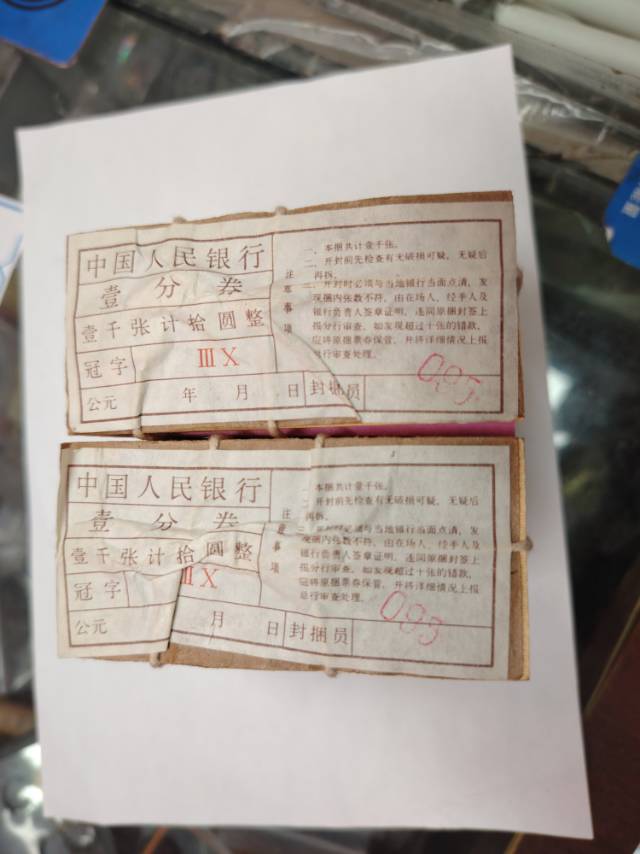 中国人民银行
壹分券
壹千张计拾圆整
冠字 ⅢⅩ
公元 年 月 日 封捆员
注意事项
一、本捆共计壹千张。
二、开封前先检查有无破损可疑，无疑后
再拆。
三、开封时必须与当地银行当面点清，发
现捆内张数不符，由在场人、经手人及
银行负责人签章证明，连同原捆封签上
报分行审查，如发现超过十张的错款，
应将原捆票券保管，并将详细情况上报
总行审查处理。
中国人民银行
壹分券
壹千张计拾圆整
冠字 ⅢⅩ
公元 月 日 封捆员
注意事项
本捆共计壹千张。
开封前先检查有无破损可疑，无疑后
再拆。
时必须与当地银行当面点清，发
现捆内张数不符，由在场人、经手人及
银行负责人签章证明，连同原捆封签上
报分行审查，如发现超过十张的错款，
应将原捆票券保管，并将详细情况上报
总行审查处理。